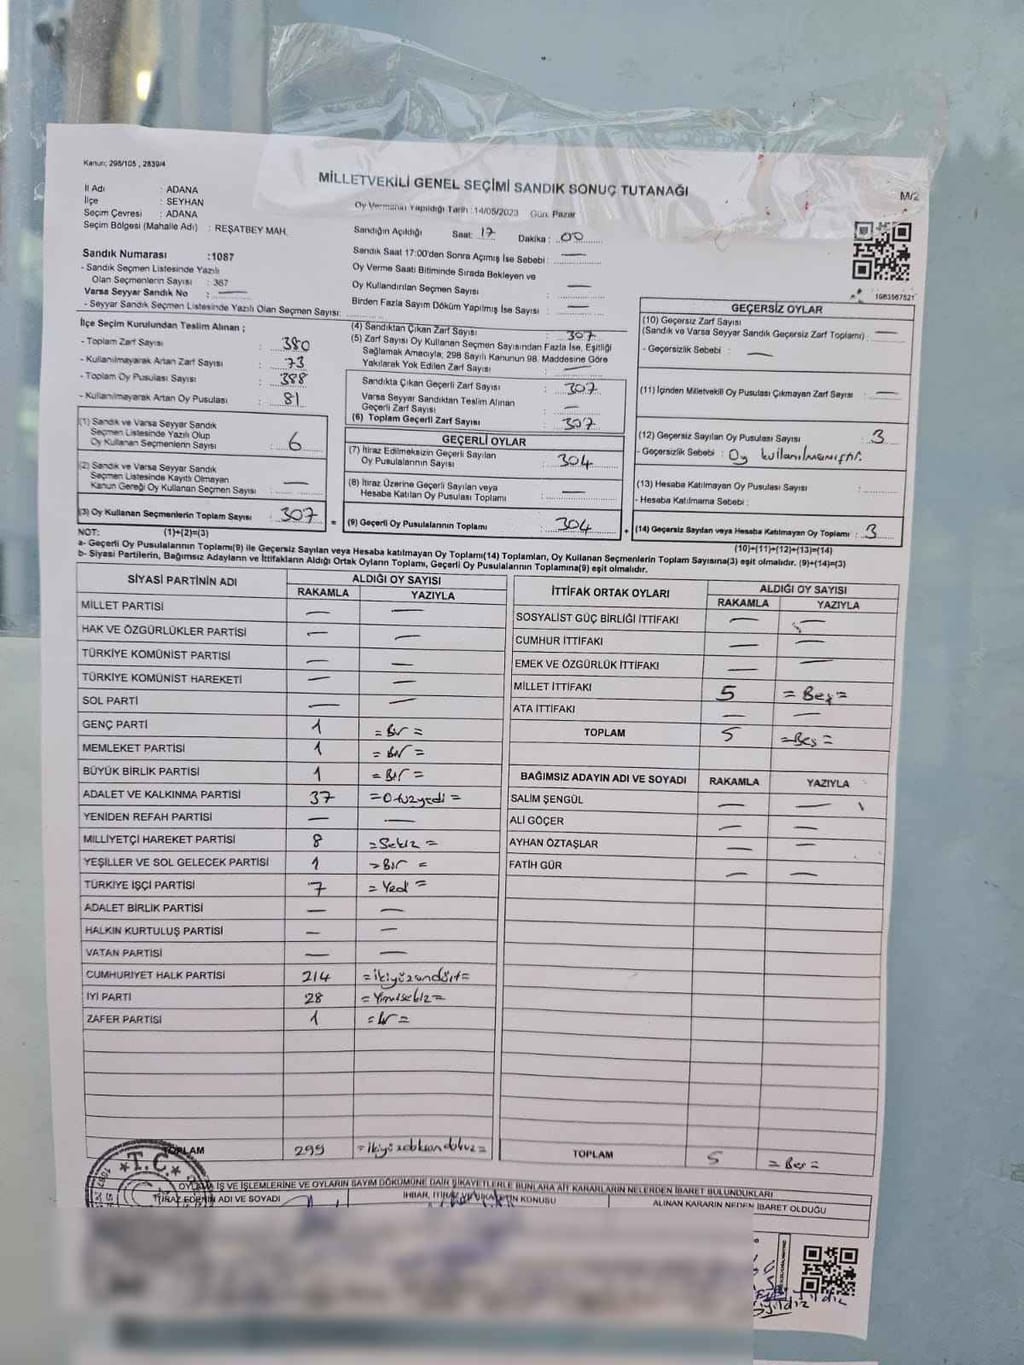 Kanun: 298/105 , 2839/4
MİLLETVEKİLİ GENEL SEÇİMİ SANDIK SONUÇ TUTANAĞI
M/2
İl Adı : ADANA
İlçe : SEYHAN
Seçim Çevresi : ADANA
Seçim Bölgesi (Mahalle Adı) : REŞATBEY MAH.
Oy Vermenin Yapıldığı Tarih : 14/05/2023 Gün: Pazar
Sandığın Açıldığı Saat: 17 Dakika : 00
Sandık Saat 17:00'den Sonra Açımış İse Sebebi : —
Oy Verme Saati Bitiminde Sırada Bekleyen ve
Oy Kullandırılan Seçmen Sayısı : —
Birden Fazla Sayım Döküm Yapılmış İse Sayısı : —
Sandık Numarası :1087
- Sandık Seçmen Listesinde Yazılı
Olan Seçmenlerin Sayısı : 367
Varsa Seyyar Sandık No : —
- Seyyar Sandık Seçmen Listesinde Yazılı Olan Seçmen Sayısı:
1983567521
İlçe Seçim Kurulundan Teslim Alınan ;
- Toplam Zarf Sayısı : 380
- Kullanılmayarak Artan Zarf Sayısı : 73
- Toplam Oy Pusulası Sayısı : 388
- Kullanılmayarak Artan Oy Pusulası : 81
(1) Sandık ve Varsa Seyyar Sandık
Seçmen Listesinde Yazılı Olup
Oy Kullanan Seçmenlerin Sayısı : 6
(2) Sandık ve Varsa Seyyar Sandık
Seçmen Listesinde Kayıtlı Olmayan
Kanun Gereği Oy Kullanan Seçmen Sayısı : —
(3) Oy Kullanan Seçmenlerin Toplam Sayısı : 307
(1)+(2)=(3)
(4) Sandıktan Çıkan Zarf Sayısı : 307
(5) Zarf Sayısı Oy Kullanan Seçmen Sayısından Fazla İse, Eşitliği
Sağlamak Amacıyla; 298 Sayılı Kanunun 98. Maddesine Göre
Yakılarak Yok Edilen Zarf Sayısı : —
Sandıkta Çıkan Geçerli Zarf Sayısı : 307
Varsa Seyyar Sandıktan Teslim Alınan
Geçerli Zarf Sayısı : —
(6) Toplam Geçerli Zarf Sayısı : 307
GEÇERLİ OYLAR
(7) İtiraz Edilmeksizin Geçerli Sayılan
Oy Pusulalarının Sayısı : 304
(8) İtiraz Üzerine Geçerli Sayılan veya
Hesaba Katılan Oy Pusulası Toplamı : —
= (9) Geçerli Oy Pusulalarının Toplamı : 304
GEÇERSİZ OYLAR
(10) Geçersiz Zarf Sayısı
(Sandık ve Varsa Seyyar Sandık Geçersiz Zarf Toplamı) : —
- Geçersizlik Sebebi : —
(11) İçinden Milletvekili Oy Pusulası Çıkmayan Zarf Sayısı : —
(12) Geçersiz Sayılan Oy Pusulası Sayısı : 3
- Geçersizlik Sebebi : Oy kullanılmamıştır.
(13) Hesaba Katılmayan Oy Pusulası Sayısı :
- Hesaba Katılmama Sebebi :
+ (14) Geçersiz Sayılan veya Hesaba Katılmayan Oy Toplamı : 3
(10)+(11)+(12)+(13)=(14)
NOT:
a- Geçerli Oy Pusulalarının Toplamı(9) ile Geçersiz Sayılan veya Hesaba katılmayan Oy Toplamı(14) Toplamları, Oy Kullanan Seçmenlerin Toplam Sayısına(3) eşit olmalıdır. (9)+(14)=(3)
b- Siyasi Partilerin, Bağımsız Adayların ve İttifakların Aldığı Ortak Oyların Toplamı, Geçerli Oy Pusulalarının Toplamına(9) eşit olmalıdır.
SİYASİ PARTİNİN ADI ALDIĞI OY SAYISI
RAKAMLA YAZIYLA
MİLLET PARTİSİ — —
HAK VE ÖZGÜRLÜKLER PARTİSİ — —
TÜRKİYE KOMÜNİST PARTİSİ — —
TÜRKİYE KOMÜNİST HAREKETİ — —
SOL PARTİ — —
GENÇ PARTİ 1 = Bir =
MEMLEKET PARTİSİ 1 = Bir =
BÜYÜK BİRLİK PARTİSİ 1 = Bir =
ADALET VE KALKINMA PARTİSİ 37 = Otuzyedi =
YENİDEN REFAH PARTİSİ — —
MİLLİYETÇİ HAREKET PARTİSİ 8 = Sekiz =
YEŞİLLER VE SOL GELECEK PARTİSİ 1 = Bir =
TÜRKİYE İŞÇİ PARTİSİ 7 = Yedi =
ADALET BİRLİK PARTİSİ — —
HALKIN KURTULUŞ PARTİSİ — —
VATAN PARTİSİ — —
CUMHURİYET HALK PARTİSİ 214 = ikiyüzondört =
İYİ PARTİ 28 = Yirmisekiz =
ZAFER PARTİSİ 1 = Bir =
TOPLAM 299 = ikiyüzdoksandokuz =
İTTİFAK ORTAK OYLARI ALDIĞI OY SAYISI
RAKAMLA YAZIYLA
SOSYALİST GÜÇ BİRLİĞİ İTTİFAKI — —
CUMHUR İTTİFAKI — —
EMEK VE ÖZGÜRLÜK İTTİFAKI — —
MİLLET İTTİFAKI 5 = Beş =
ATA İTTİFAKI — —
TOPLAM 5 = Beş =
BAĞIMSIZ ADAYIN ADI VE SOYADI RAKAMLA YAZIYLA
SALİM ŞENGÜL — —
ALİ GÖÇER — —
AYHAN ÖZTAŞLAR — —
FATİH GÜR — —
TOPLAM 5 = Beş =
T.C.
OYLAMA İŞ VE İŞLEMLERİNE VE OYLARIN SAYIM DÖKÜMÜNE DAİR ŞİKAYETLERLE BUNLARA AİT KARARLARIN NELERDEN İBARET BULUNDUKLARI
İTİRAZ EDENİN ADI VE SOYADI
İHBAR, İTİRAZ VE ŞİKAYETİN KONUSU
ALINAN KARARIN NEDEN İBARET OLDUĞU